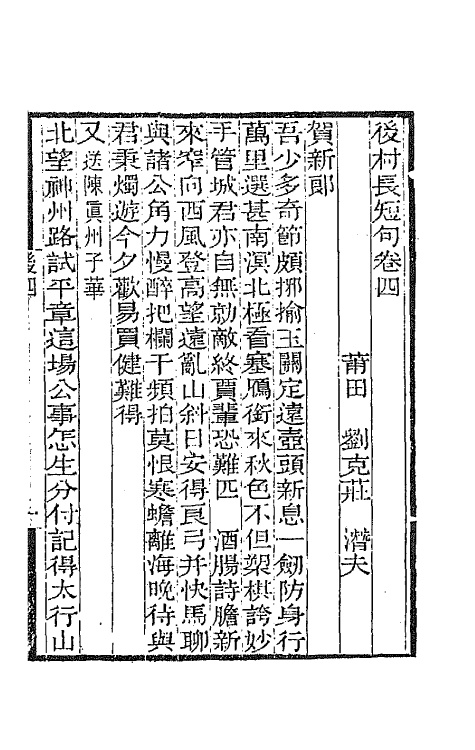 後村長短句卷四
莆田　劉克莊　潛夫
賀新郎
吾少多奇節頗揶揄玉關定遠壺頭新息一劒防身行
萬里選甚南溟北極看塞鴈銜來秋色不但槊棋誇妙
手管城君亦自無勍敵終賈輩恐難匹　酒腸詩膽新
來窄向西風登高望遠亂山斜日安得良弓幷快馬聊
與諸公角力慢醉把欄干頻拍莫恨寒蟾離海晚待與
君秉燭遊今夕歡易買健難得
又 送陳眞州子華
北望神州路試平章這場公事怎生分付記得太行山
後四
一